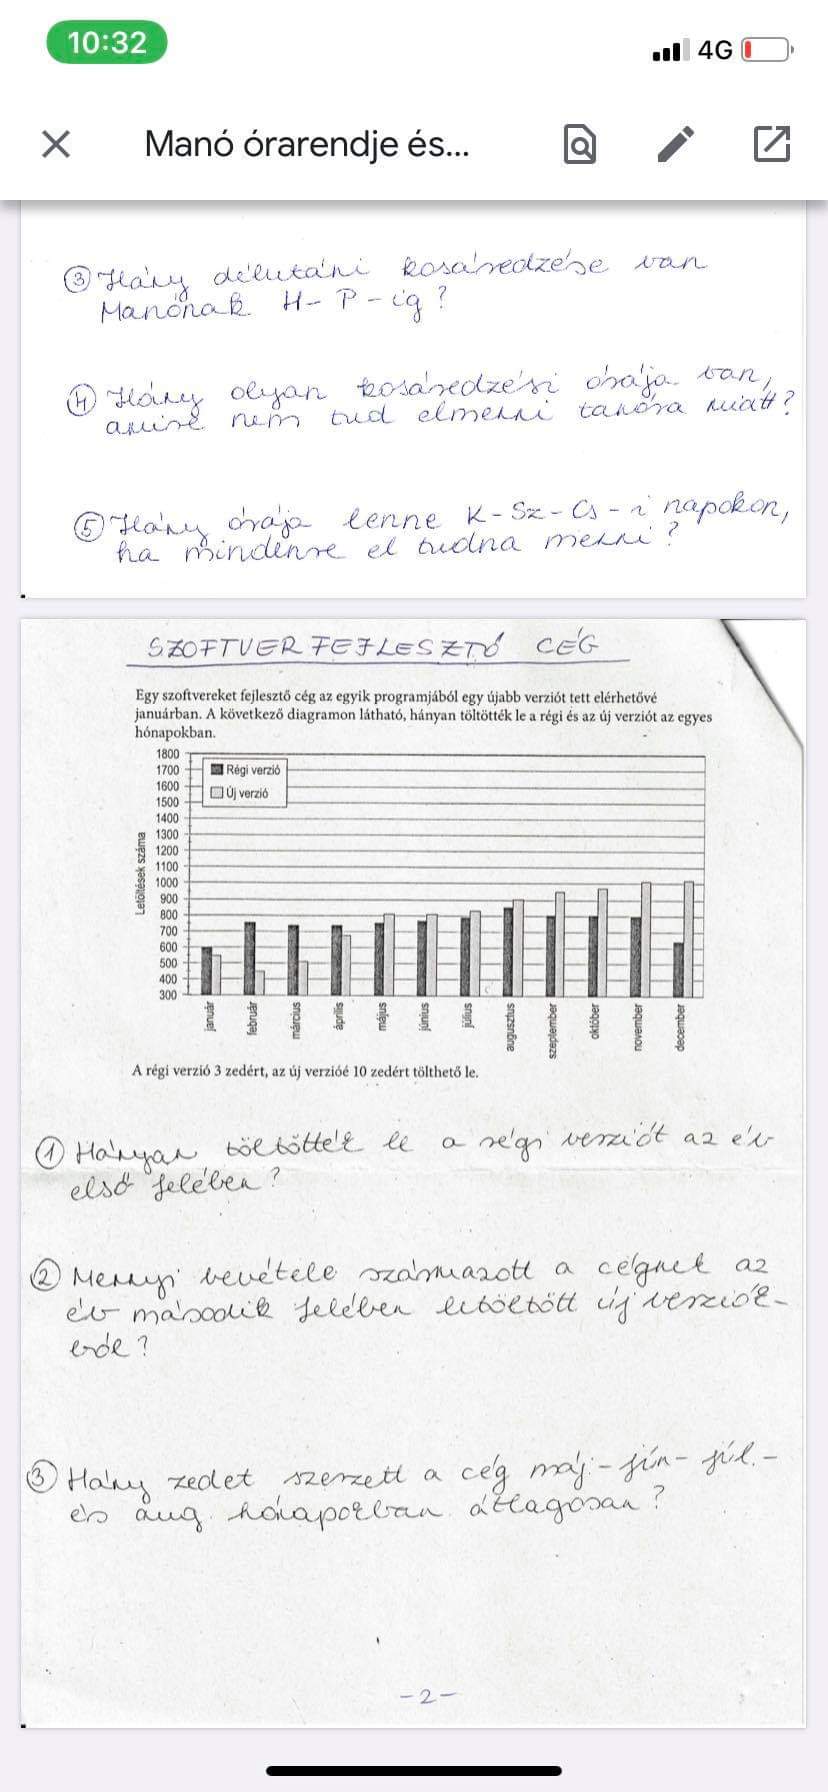 10:32
4G
Manó órarendje és...
③ Hány délutáni kosáredzése van
Manónak H-P-ig?
④ Hány olyan kosáredzési órája van,
amire nem tud elmenni tanóra miatt?
⑤ Hány órája lenne K-Sz-Cs-i napokon,
ha mindenre el tudna menni?
SZOFTVERFEJLESZTŐ CÉG
Egy szoftvereket fejlesztő cég az egyik programjából egy újabb verziót tett elérhetővé
januárban. A következő diagramon látható, hányan töltötték le a régi és az új verziót az egyes
hónapokban.
Letöltések száma
1800
1700
1600
1500
1400
1300
1200
1100
1000
900
800
700
600
500
400
300
Régi verzió
Új verzió
január
február
március
április
május
június
július
augusztus
szeptember
október
november
december
A régi verzió 3 zedért, az új verzióé 10 zedért tölthető le.
① Hányan töltötték le a régi verziót az év
első felében?
② Mennyi bevétele származott a cégnek az
év második felében letöltött új verziók-
ból?
③ Hány zedet szerzett a cég máj.-jún-júl.-
és aug. hónapokban átlagosan?
-2-